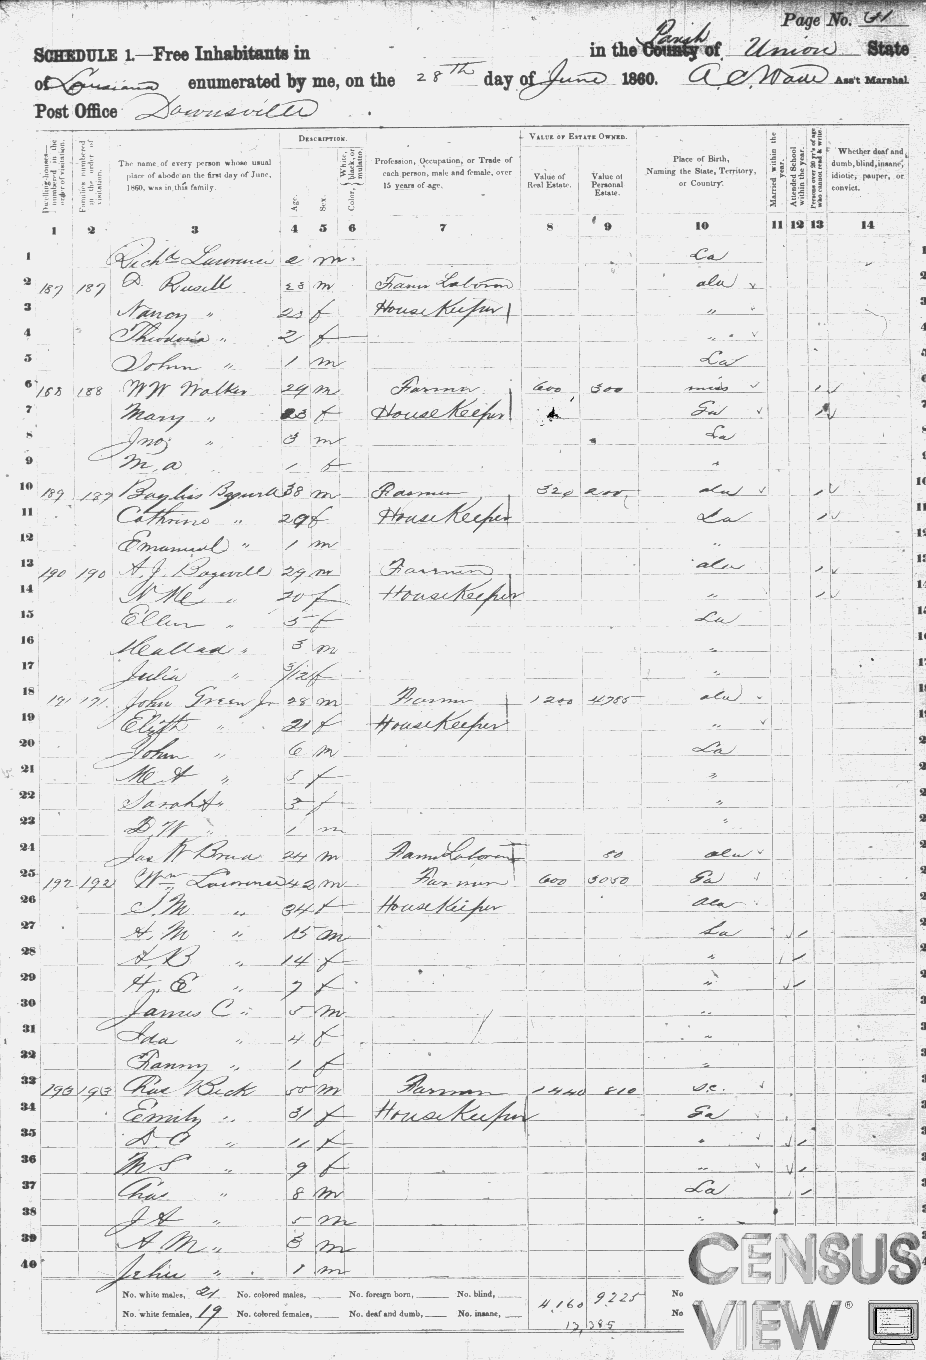 Page No. 41
SCHEDULE 1.—Free Inhabitants in in the County of Parish Union State
of Louisiana enumerated by me, on the 28th day of June 1860. A C Wade Ass't Marshal.
Post Office Downsville
Dwelling-houses—numbered in the order of visitation.
Families numbered in the order of visitation.
The name of every person whose usual place of abode on the first day of June, 1860, was in this family.
DESCRIPTION.
Age.
Sex.
Color, White, black, or mulatto.
Profession, Occupation, or Trade of each person, male and female, over 15 years of age.
VALUE OF ESTATE OWNED.
Value of Real Estate.
Value of Personal Estate.
Place of Birth, Naming the State, Territory, or Country.
Married within the year.
Attended School within the year.
Persons over 20 y'rs of age who cannot read & write.
Whether deaf and dumb, blind, insane, idiotic, pauper, or convict.
1 2 3 4 5 6 7 8 9 10 11 12 13 14
1 Richd Lawrence 2 m La
2 187 187 D Rusell 23 m Farm Laborer ala
3 Nancy " 23 f House Keeper "
4 Theodosia " 2 f "
5 John " 1 m La
6 188 188 WW Walker 29 m Farmer 600 300 miss
7 Mary " 23 f House Keeper Ga
8 Jno " 3 m La
9 M. a 1 f "
10 189 189 Bayliss Bagwell 38 m Farmer 320 200 ala
11 Cathrine " 29 f House Keeper La
12 Emanuel " 1 m "
13 190 190 A. J. Bagwell 29 m Farmer ala
14 " 20 f House Keeper "
15 Ellen " 5 f La
16 " 3 m "
17 Julia " 3/12 f "
18 191 191 John Green Jr 28 m Farmer 1200 4785 ala
19 Elizth " 21 f House Keeper "
20 John " 6 m La
21 M A " 5 f "
22 Sarah A " 3 f "
23 D, W " 1 m "
24 Jas W 24 m Farm Laborer 50 ala
25 192 192 Wm Lawrence 42 m Farmer 600 3050 Ga
26 S. M " 34 f House Keeper ala
27 A, M " 15 m La
28 A, B " 14 f "
29 H, E " 7 f "
30 James C " 5 m "
31 Ida " 4 f "
32 Fanny " 1 f "
33 193 193 Chas Beck 55 m Farmer 1440 810 S.C.
34 Emily " 31 f House Keeper Ga
35 D. C " 11 f "
36 M S " 9 f "
37 Chas " 8 m La
38 J A " 5 m "
39 A M " 3 m
40 John " 1 m
No. white males, 21 No. colored males, No. foreign born, No. blind,
No. white females, 19 No. colored females, No. deaf and dumb, No. insane,
4,160 9225
13,385
No
No
CENSUS
VIEW®